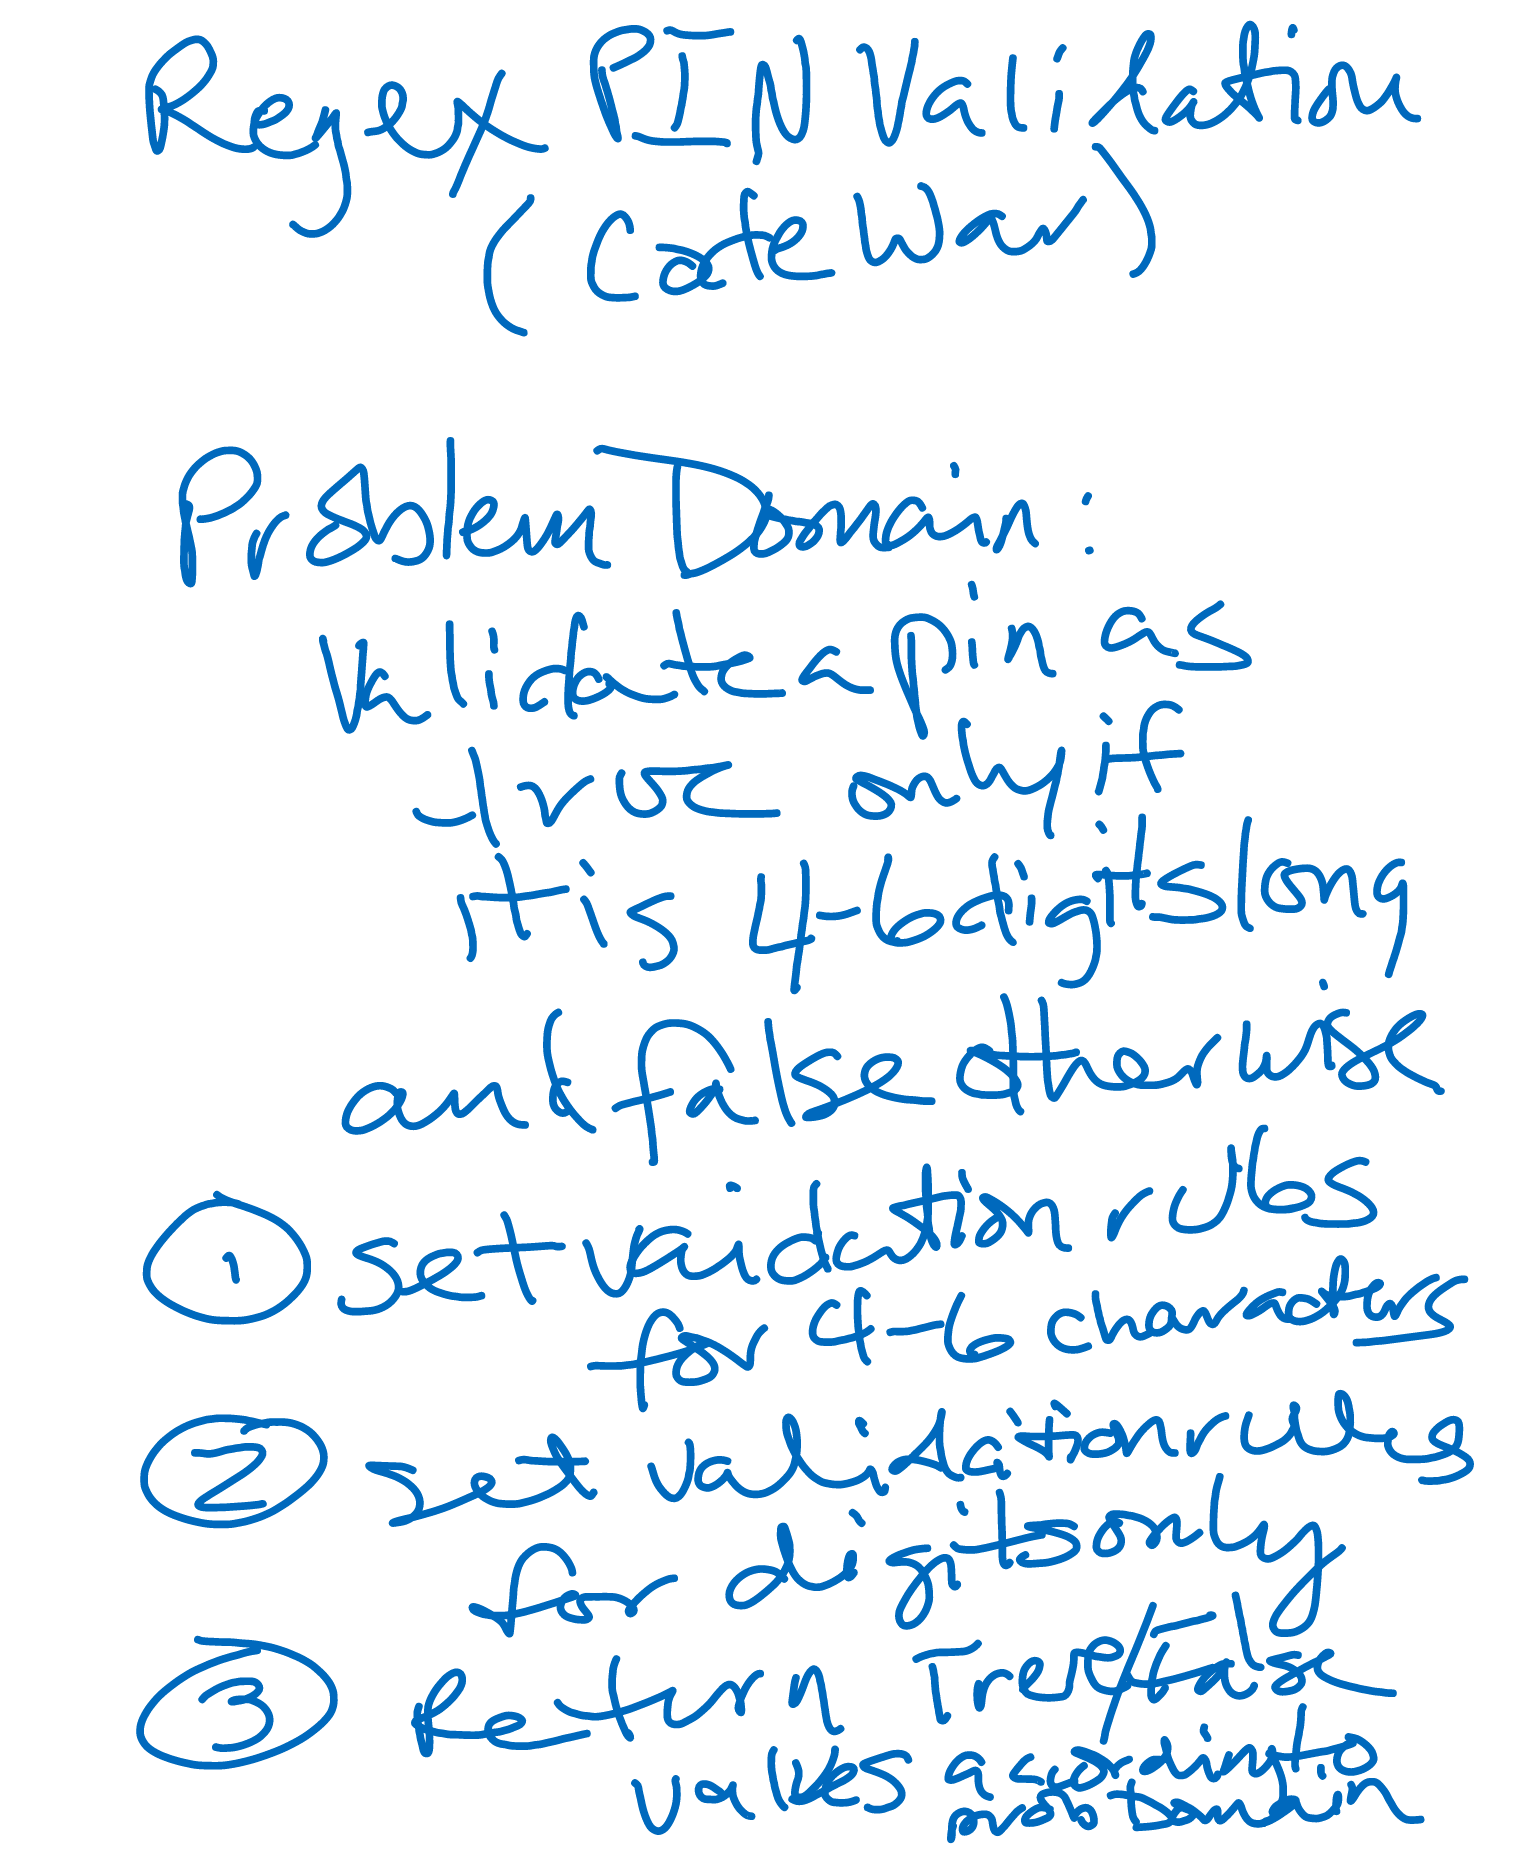 Regex PIN Validation
(Cate War)
Problem Domain:
Validate a pin as
true only if
it is 4-6 digits long
and false otherwise
1 set validation rules
for 4-6 characters
2 set validation rules
for digits only
3 Return True/False
values according to
prob Domain